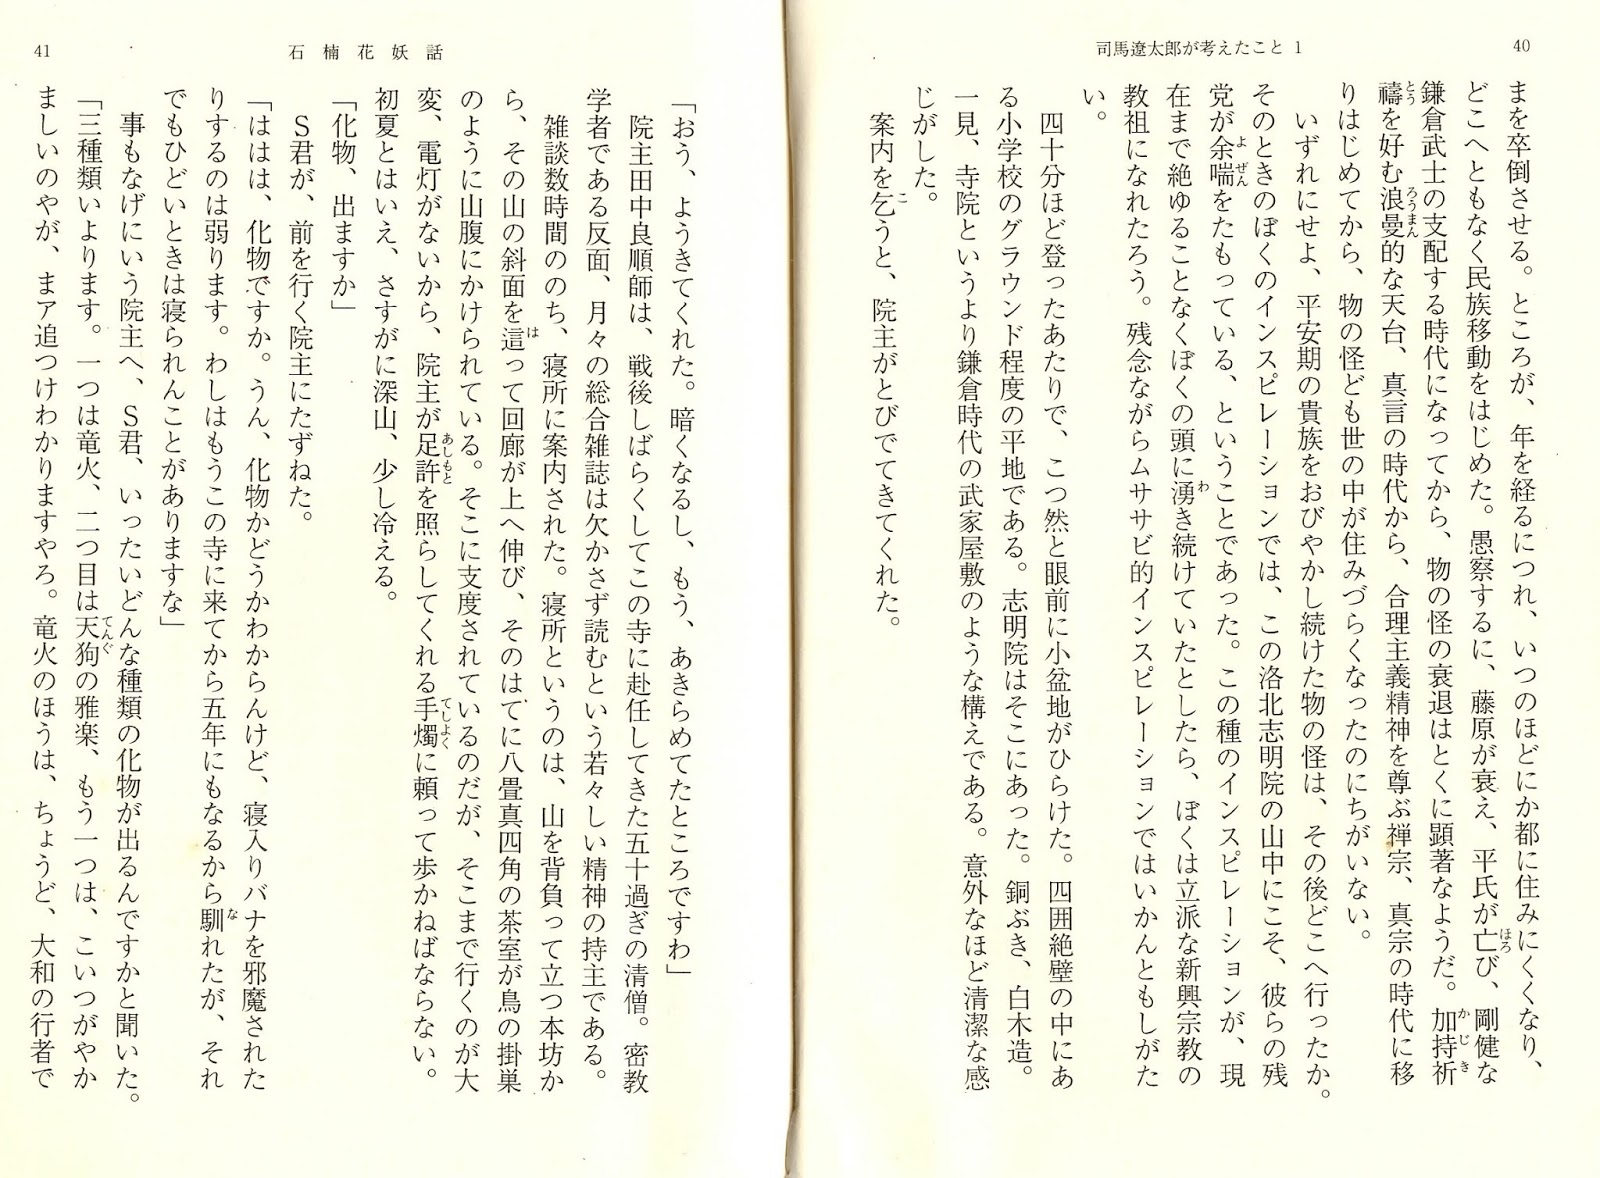 40
司馬遼太郎が考えたこと 1
まを卒倒させる。ところが、年を経るにつれ、いつのほどにか都に住みにくくなり、
どこへともなく民族移動をはじめた。愚察するに、藤原が衰え、平氏が亡び、剛健な
鎌倉武士の支配する時代になってから、物の怪の衰退はとくに顕著なようだ。加持祈
禱を好む浪曼的な天台、真言の時代から、合理主義精神を尊ぶ禅宗、真宗の時代に移
りはじめてから、物の怪ども世の中が住みづらくなったのにちがいない。
いずれにせよ、平安期の貴族をおびやかし続けた物の怪は、その後どこへ行ったか。
そのときのぼくのインスピレーションでは、この洛北志明院の山中にこそ、彼らの残
党が余喘をたもっている、ということであった。この種のインスピレーションが、現
在まで絶ゆることなくぼくの頭に湧き続けていたとしたら、ぼくは立派な新興宗教の
教祖になれたろう。残念ながらムササビ的インスピレーションではいかんともしがた
い。
四十分ほど登ったあたりで、こつ然と眼前に小盆地がひらけた。四囲絶壁の中にあ
る小学校のグラウンド程度の平地である。志明院はそこにあった。銅ぶき、白木造。
一見、寺院というより鎌倉時代の武家屋敷のような構えである。意外なほど清潔な感
じがした。
案内を乞うと、院主がとびでてきてくれた。
41
石楠花妖話
「おう、ようきてくれた。暗くなるし、もう、あきらめてたところですわ」
院主田中良順師は、戦後しばらくしてこの寺に赴任してきた五十過ぎの清僧。密教
学者である反面、月々の総合雑誌は欠かさず読むという若々しい精神の持主である。
雑談数時間ののち、寝所に案内された。寝所というのは、山を背負って立つ本坊か
ら、その山の斜面を這って回廊が上へ伸び、そのはてに八畳真四角の茶室が鳥の掛巣
のように山腹にかけられている。そこに支度されているのだが、そこまで行くのが大
変、電灯がないから、院主が足許を照らしてくれる手燭に頼って歩かねばならない。
初夏とはいえ、さすがに深山、少し冷える。
「化物、出ますか」
S君が、前を行く院主にたずねた。
「ははは、化物ですか。うん、化物かどうかわからんけど、寝入りバナを邪魔された
りするのは弱ります。わしはもうこの寺に来てから五年にもなるから馴れたが、それ
でもひどいときは寝られんことがありますな」
事もなげにいう院主へ、S君、いったいどんな種類の化物が出るんですかと聞いた。
「三種類いよります。一つは竜火、二つ目は天狗の雅楽、もう一つは、こいつがやか
ましいのやが、まア追つけわかりますやろ。竜火のほうは、ちょうど、大和の行者で